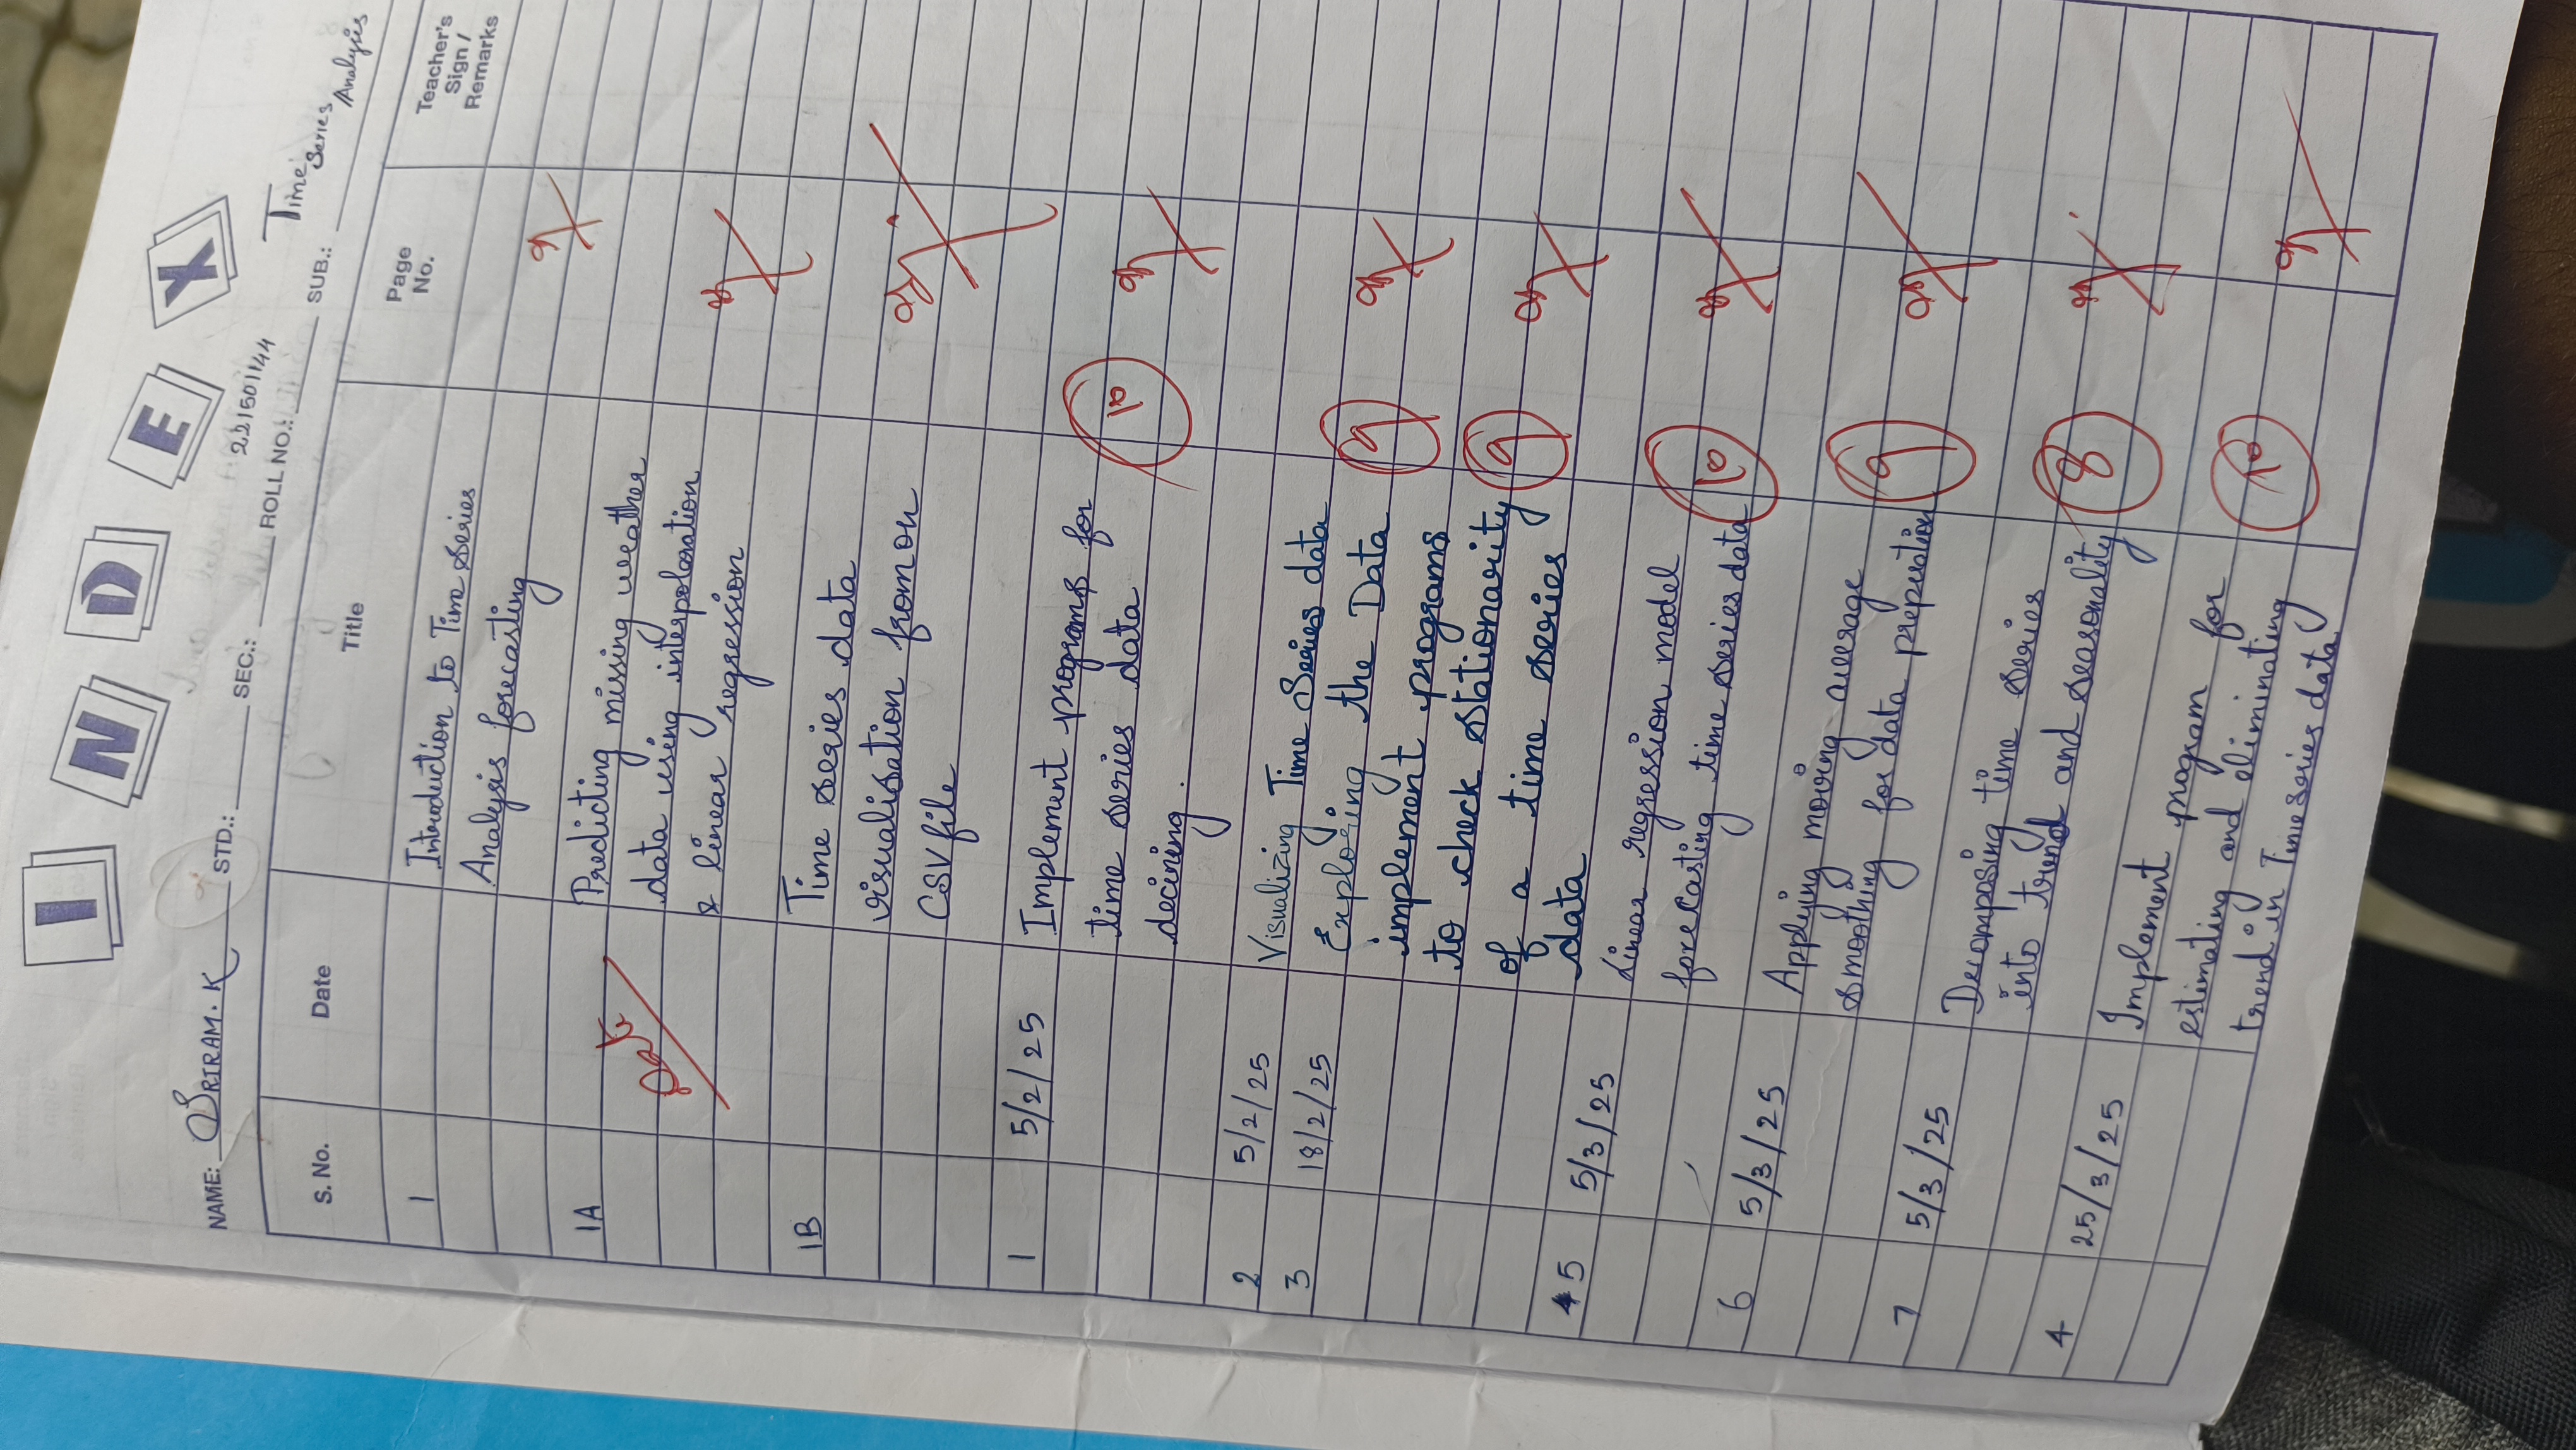 INDEX
Time Series Analysis
NAME: SRIRAM. K STD.: SEC.: ROLL NO.: 221501144 SUB.:
S. No. Date Title Page No. Teacher's Sign / Remarks
1 Introduction to Time Series
Analysis forecasting
1A Predicting missing weather
data using interpolaration
& linear regression
1B Time series data
visualisation from on
CSV file
1 5/2/25 Implement programs for
time series data 10
decining.
2 5/2/25 Visualizing Time Series data
3 18/2/25 Exploring the Data 9
implement programs
to check stationarity 9
of a time series
data
5 5/3/25 Linear regression model
forecasting time series data 10
6 5/3/25 Applying moving average
smoothing for data prepration 9
7 5/3/25 Decomposing time series
into trend and seasonality 8
4 25/3/25 Implement program for
estimating and eliminating 10
trend in Time series data